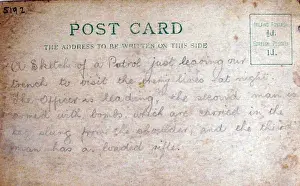 5192
POST CARD
THE ADDRESS TO BE WRITTEN ON THIS SIDE
A Sketch of a Patrol just leaving our
trench to visit the enemy lines at night.
The Officer is leading, the second man is
armed with bombs which are carried in the
slung from the shoulder, and the third
man has a loaded rifle.